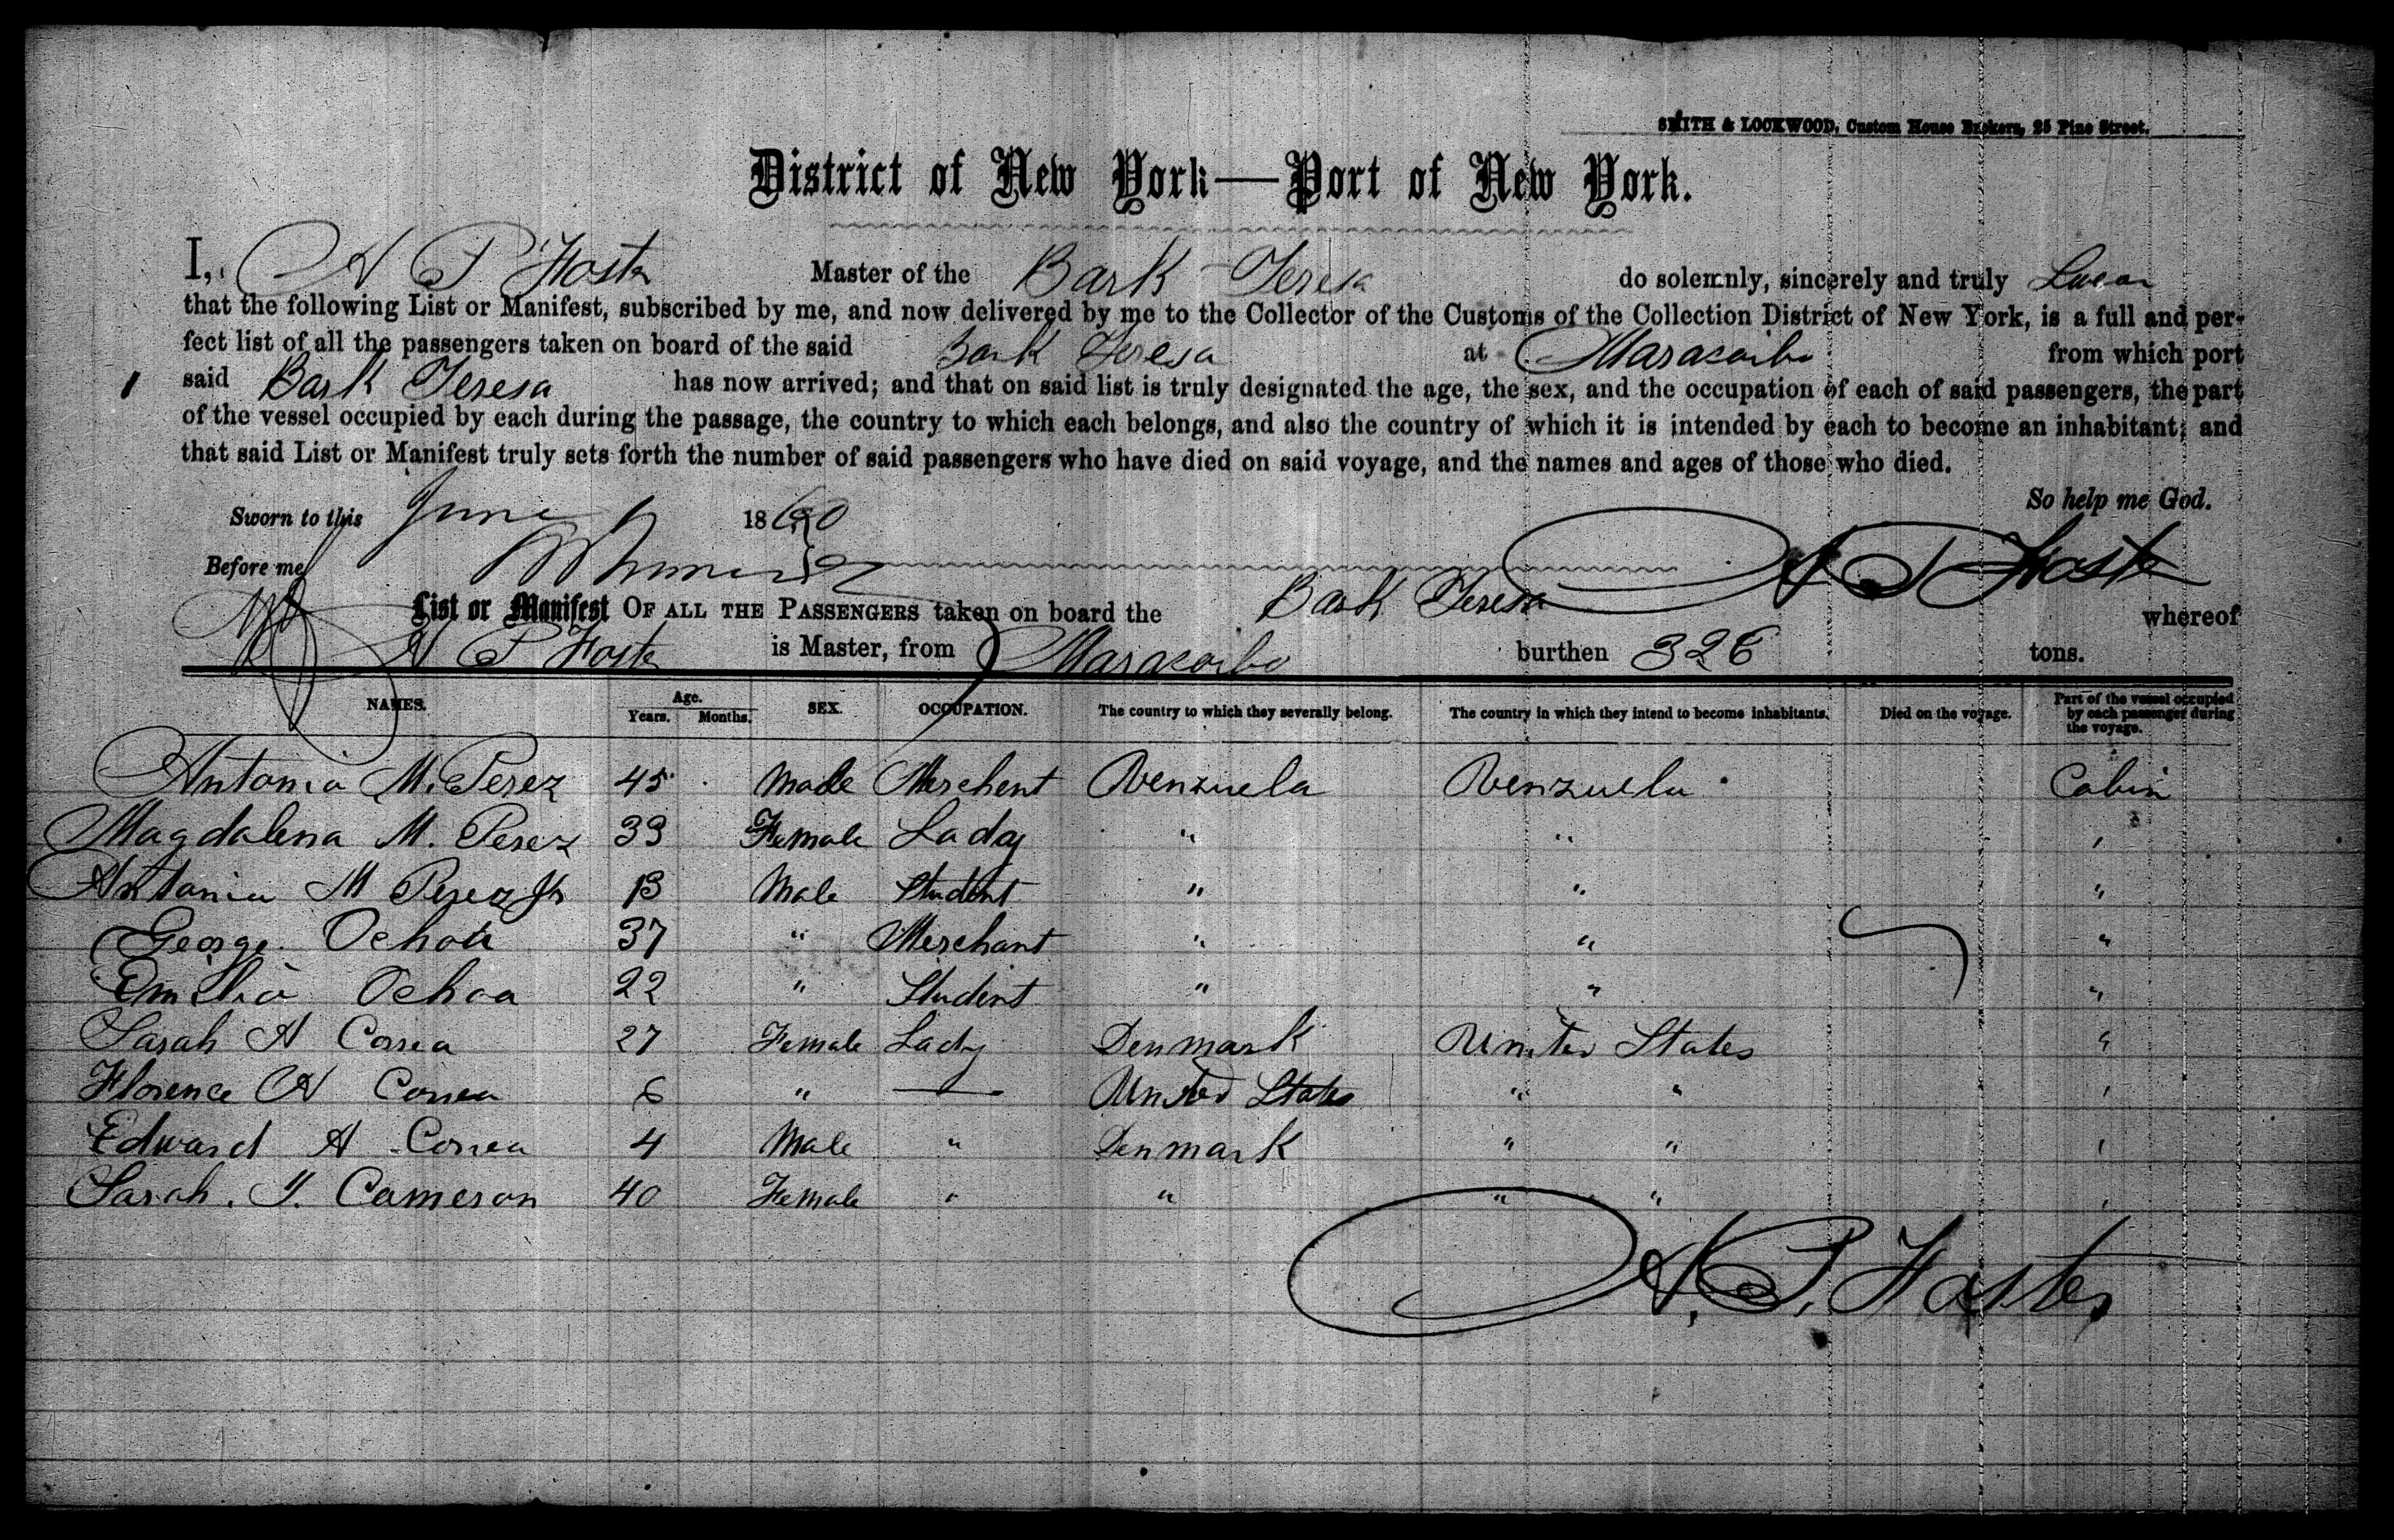 SMITH & LOCKWOOD, Custom House Brokers, 25 Pine Street.
District of New York—Port of New York.
I, A P Foster Master of the Bark Teresa do solemnly, sincerely and truly Swear
that the following List or Manifest, subscribed by me, and now delivered by me to the Collector of the Customs of the Collection District of New York, is a full and per-
fect list of all the passengers taken on board of the said Bark Teresa at Maracaibo from which port
said Bark Teresa has now arrived; and that on said list is truly designated the age, the sex, and the occupation of each of said passengers, the part
of the vessel occupied by each during the passage, the country to which each belongs, and also the country of which it is intended by each to become an inhabitant; and
that said List or Manifest truly sets forth the number of said passengers who have died on said voyage, and the names and ages of those who died.
So help me God.
Sworn to this June 1860
Before me A P Foster
List or Manifest OF ALL THE PASSENGERS taken on board the Bark Teresa whereof
A P Foster is Master, from Maracaibo burthen 326 tons.
NAMES. Age. Years. Months. SEX. OCCUPATION. The country to which they severally belong. The country in which they intend to become inhabitants. Died on the voyage. Part of the vessel occupied by each passenger during the voyage.
Antonio M. Perez 45 Male Merchent Venzuela Venzuela Cabin
Magdalena M. Perez 33 Female Lady " " "
Antonio M Perez Jr 13 Male Student " " "
George Ochoa 37 " Merchant " " "
Emilio Ochoa 22 " Student " " "
Sarah A Correa 27 Female Lady Denmark United States "
Florence A Correa 6 " — United States " " "
Edward A Correa 4 Male " Denmark " " "
Sarah. Cameron 40 Female " " " " "
A. P. Foster